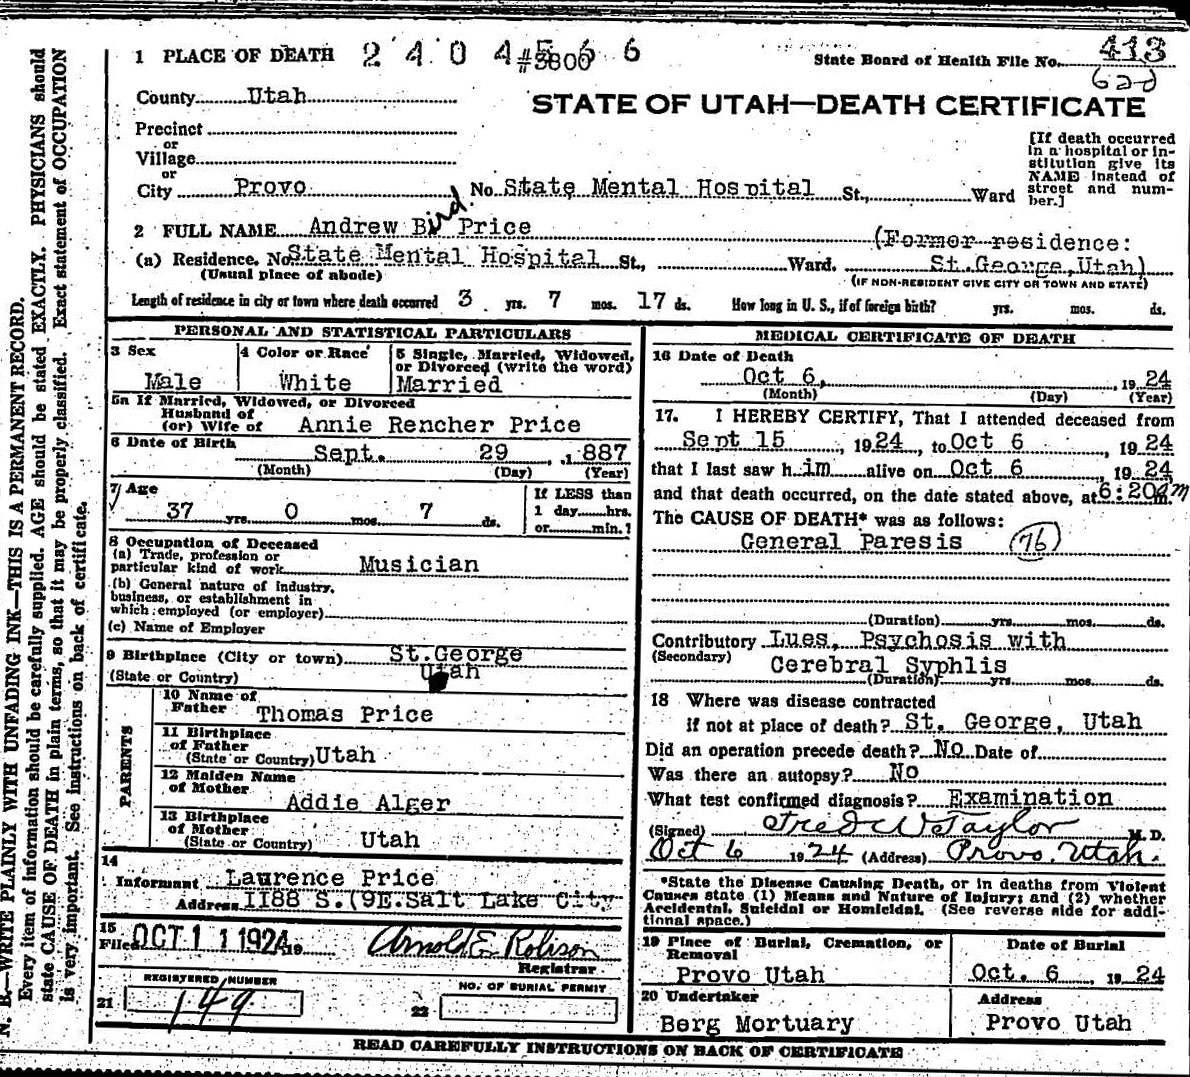 1 PLACE OF DEATH 2 4 0 4 5 6 6
#3800
State Board of Health File No. 413
620
County Utah
STATE OF UTAH—DEATH CERTIFICATE
Precinct
or
Village
or
City Provo No. State Mental Hospital St., Ward
[If death occurred
in a hospital or in-
stitution give its
NAME instead of
street and num-
ber.]
2 FULL NAME Andrew Bird Price
(Former residence:
(a) Residence. No. State Mental Hospital St., Ward. St.George,Utah)
(Usual place of abode) (IF NON-RESIDENT GIVE CITY OR TOWN AND STATE)
Length of residence in city or town where death occurred 3 yrs. 7 mos. 17 ds. How long in U. S., if of foreign birth? yrs. mos. ds.
PERSONAL AND STATISTICAL PARTICULARS
3 Sex
Male
4 Color or Race
White
5 Single, Married, Widowed,
or Divorced (write the word)
Married
5a If Married, Widowed, or Divorced
Husband of
(or) Wife of Annie Rencher Price
6 Date of Birth
Sept. 29, 1887
(Month) (Day) (Year)
7 Age
37 yrs. 0 mos. 7 ds.
If LESS than
1 day hrs.
or min.?
8 Occupation of Deceased
(a) Trade, profession or
particular kind of work Musician
(b) General nature of industry,
business, or establishment in
which employed (or employer)
(c) Name of Employer
9 Birthplace (City or town) St.George
(State or Country) Utah
PARENTS
10 Name of
Father Thomas Price
11 Birthplace
of Father
(State or Country) Utah
12 Maiden Name
of Mother
Addie Alger
13 Birthplace
of Mother
(State or Country) Utah
14
Informant Laurence Price
Address 1188 S.(9E.Salt Lake City
15
Filed OCT 11 1924 19 Arnold E. Robison
Registrar
REGISTERED NUMBER
21 149
NO. OF BURIAL PERMIT
22
MEDICAL CERTIFICATE OF DEATH
16 Date of Death
Oct 6, , 19 24
(Month) (Day) (Year)
17. I HEREBY CERTIFY, That I attended deceased from
Sept 15 , 1924, to Oct 6 , 19 24
that I last saw him alive on Oct 6 , 19 24,
and that death occurred, on the date stated above, at 6:20am.
The CAUSE OF DEATH* was as follows:
General Paresis (76)
(Duration) yrs. mos. ds.
Contributory Lues, Psychosis with
(Secondary) Cerebral Syphlis
(Duration) yrs. mos. ds.
18 Where was disease contracted
if not at place of death? St, George, Utah
Did an operation precede death? No Date of
Was there an autopsy? No
What test confirmed diagnosis? Examination
(Signed) Fred W Taylor M. D.
Oct 6 1924 (Address) Provo, Utah.
*State the Disease Causing Death, or in deaths from Violent
Causes state (1) Means and Nature of Injury; and (2) whether
Accidental, Suicidal or Homicidal. (See reverse side for addi-
tional space.)
19 Place of Burial, Cremation, or
Removal
Provo Utah
Date of Burial
Oct. 6 , 19 24
20 Undertaker
Berg Mortuary
Address
Provo Utah
READ CAREFULLY INSTRUCTIONS ON BACK OF CERTIFICATE
N. B.—WRITE PLAINLY WITH UNFADING INK—THIS IS A PERMANENT RECORD.
Every item of information should be carefully supplied. AGE should be stated EXACTLY. PHYSICIANS should
state CAUSE OF DEATH in plain terms, so that it may be properly classified. Exact statement of OCCUPATION
is very important. See instructions on back of certificate.